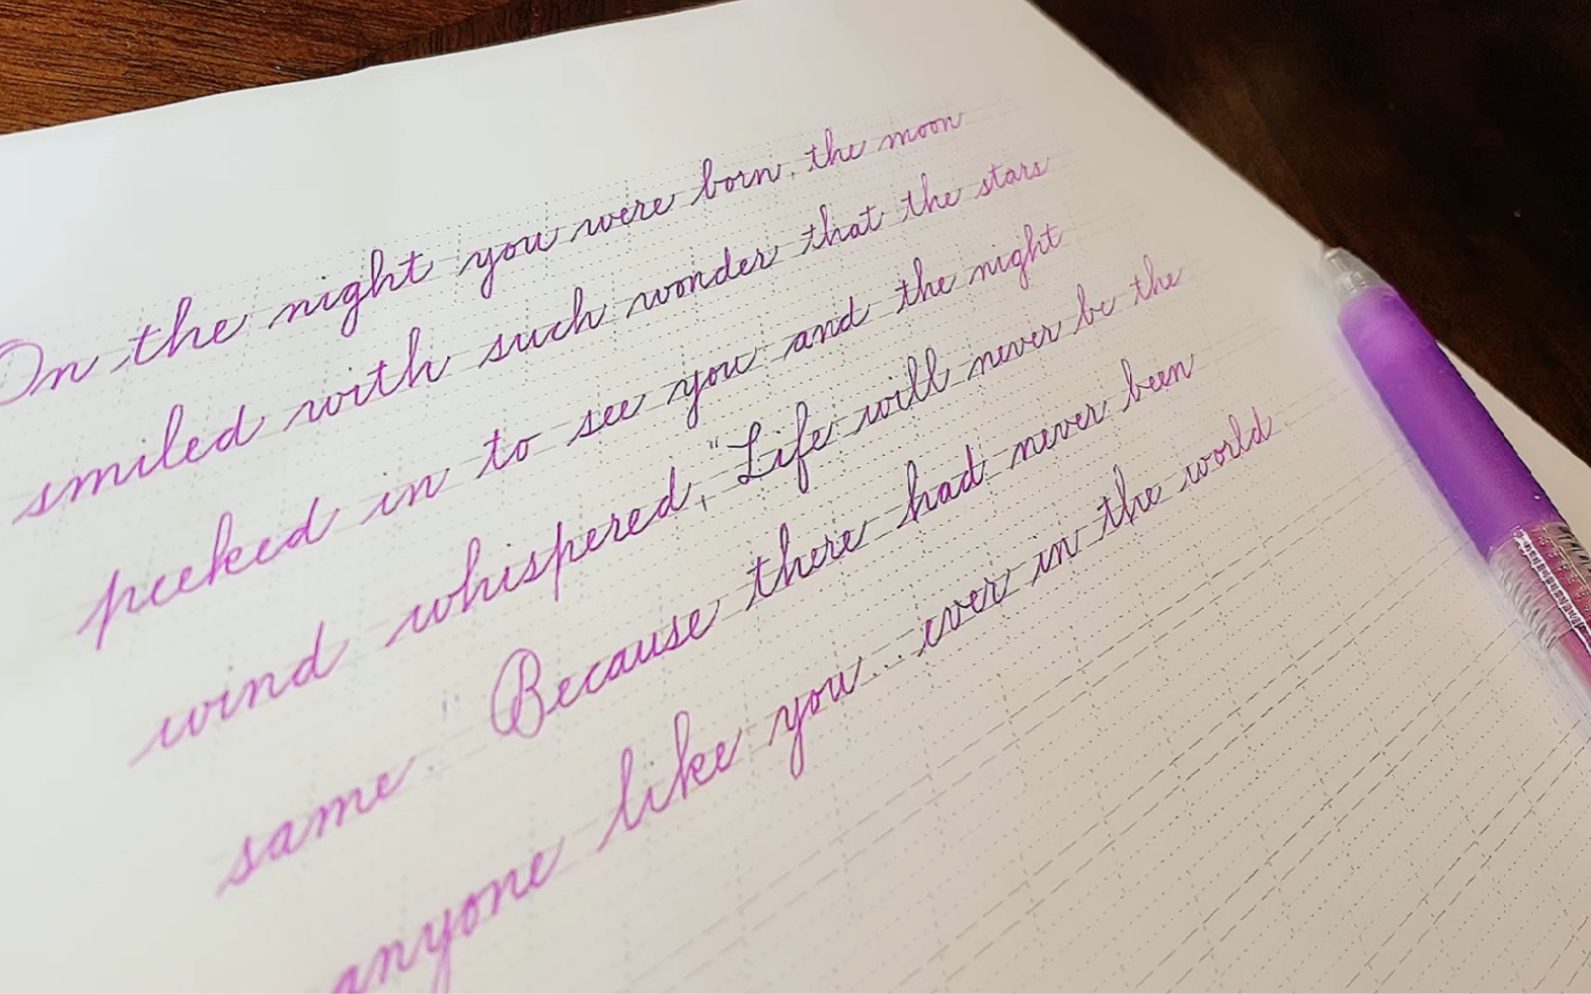 On the night you were born, the moon
smiled with such wonder that the stars
peeked in to see you and the night
wind whispered, "Life will never be the
same." Because there had never been
anyone like you... ever in the world.